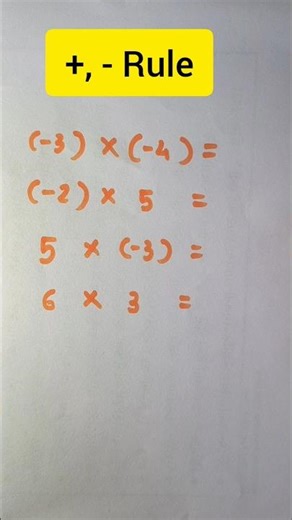 +, - Rule
(-3) × (-4) =
(-2) × 5 =
5 × (-3) =
6 × 3 =